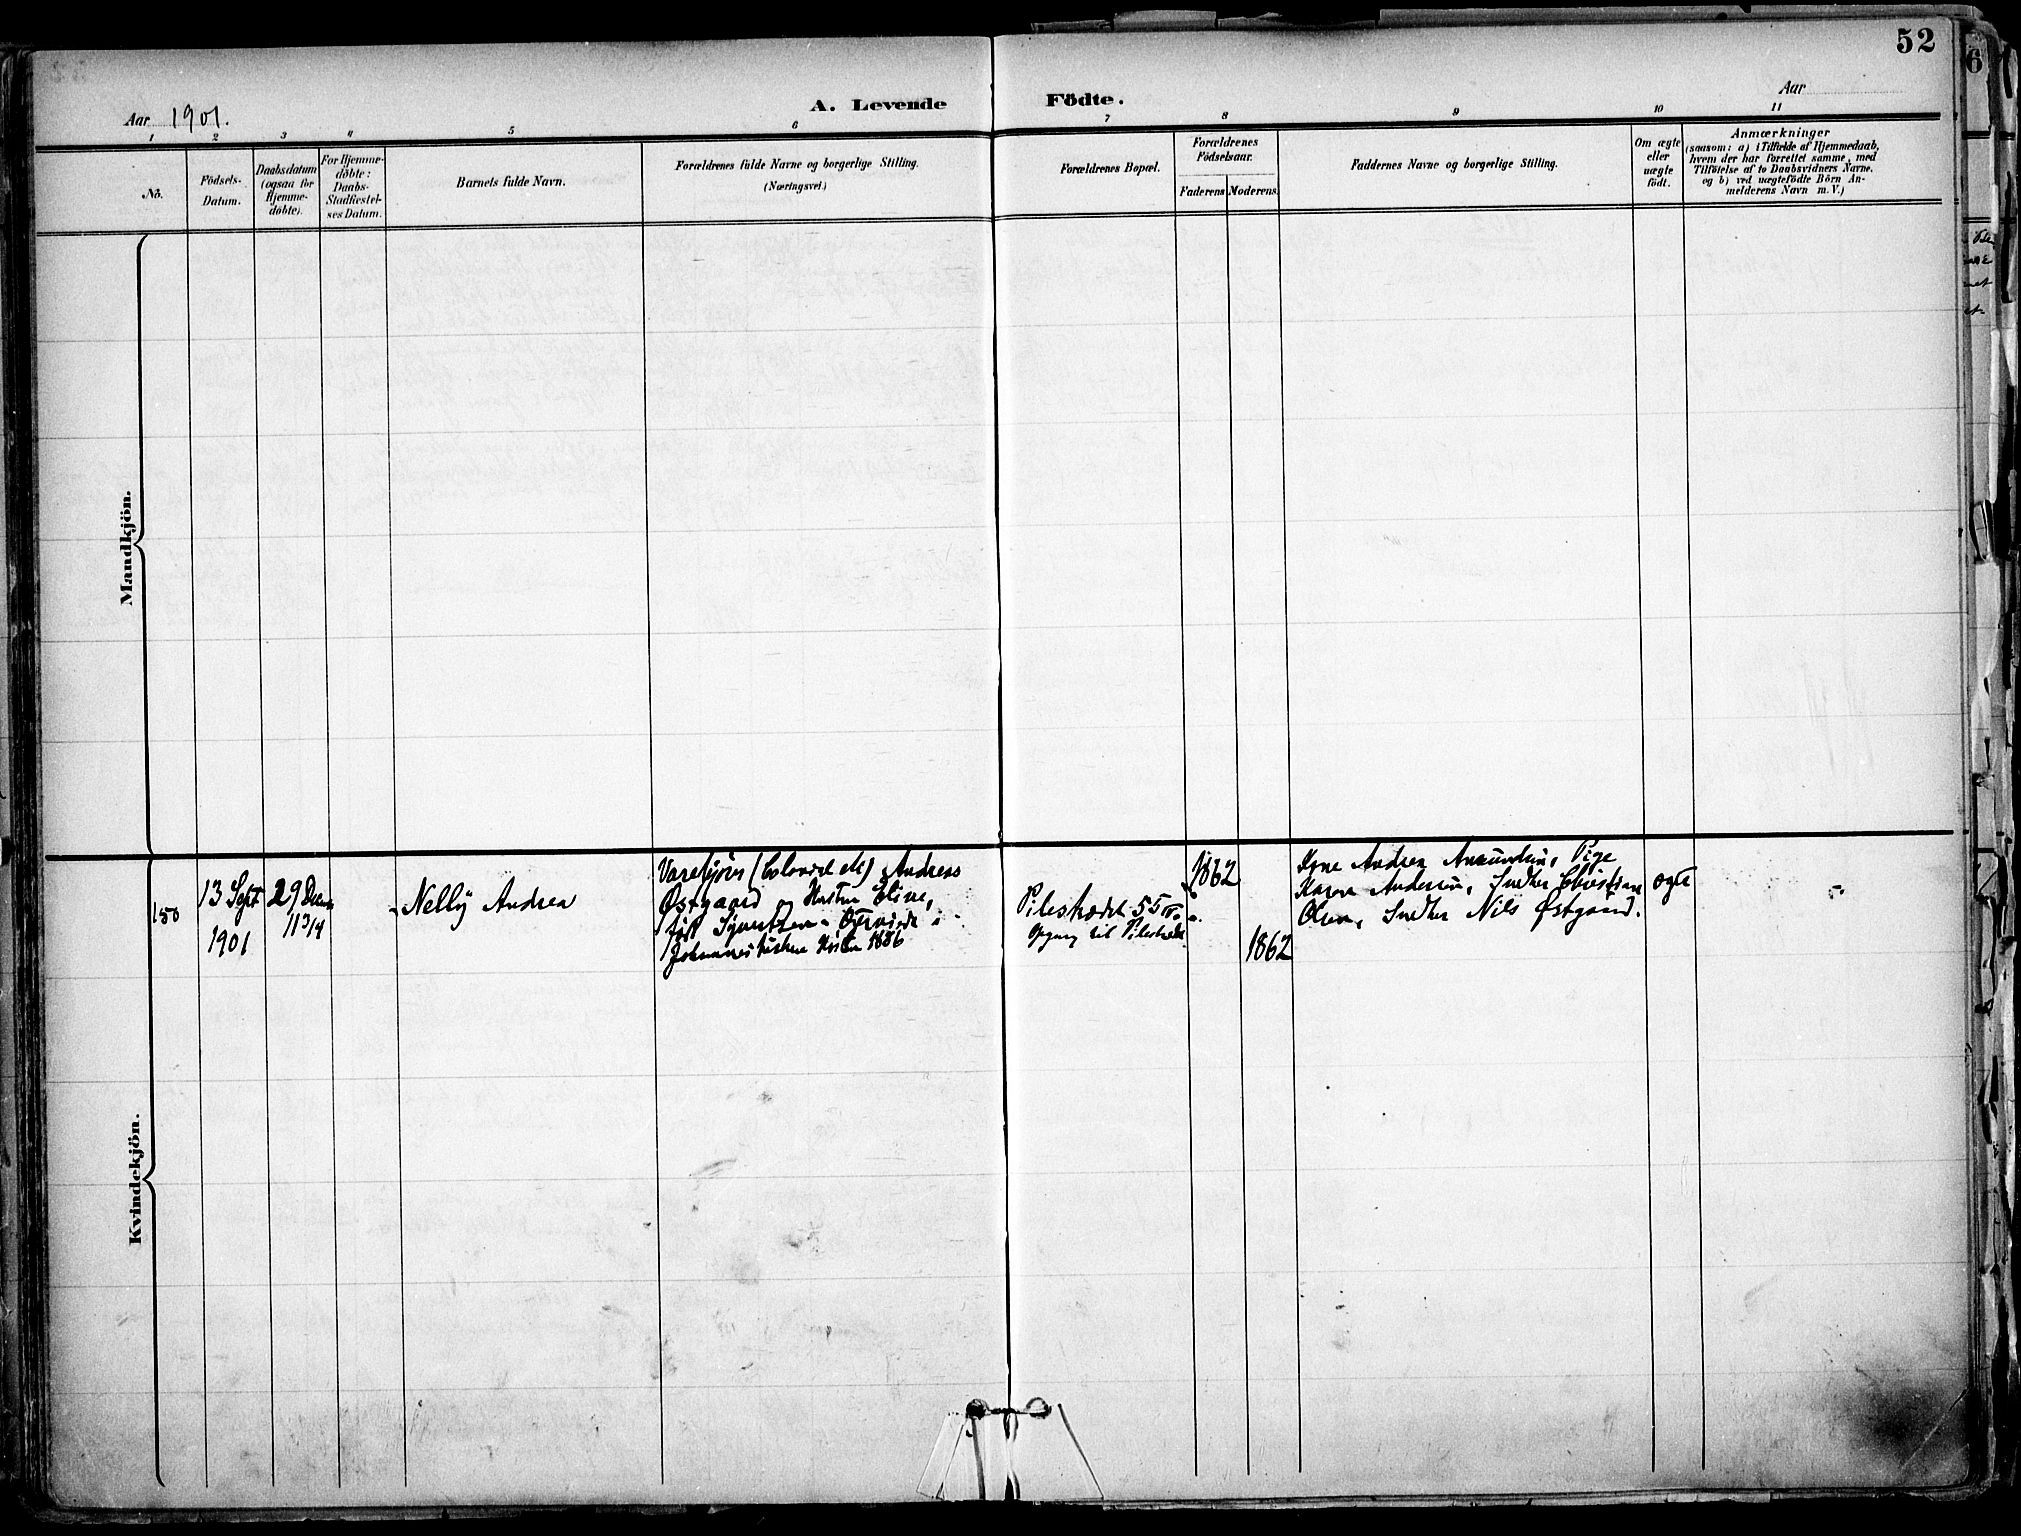 52
6
Aar 1901.
A. Levende
Födte.
Aar
1 2 3 4 5 6 7 8 9 10 11
No.
Födsels-
Datum.
Daabsdatum
(ogsaa for
Hjemme-
døbte).
For Hjemme-
døbte:
Daabs-
Stadfæstel-
ses Datum.
Barnets fulde Navn.
Forældrenes fulde Navne og borgerlige Stilling.
(Næringsvei.)
Forældrenes Bopæl.
Forældrenes
Födselsaar.
Faderens. Moderens.
Faddernes Navne og borgerlige Stilling.
Om ægte
eller
uægte
födt.
Anmærkninger
(saasom: a) i Tilfælde af Hjemmedaab,
hvem der har forrettet samme, med
Tilföielse af to Daabsvidners Navne,
og b) ved uægtefödte Börn An-
melderens Navn m. V.)
Mandkjön.
Kvindekjön.
150
13 Sept
1901
29
11 3/4
Nelly Andrea
Andreas
Østgaard og Hustru Eline,
født
Johannes 1886
Pilestrædet 55 IV.
Opgang til
1862
1862
Andrea Amundsen, Pige
Karen Andersen, Snedker Christian
Olsen, Snedker Nils Østgaard.
ægte